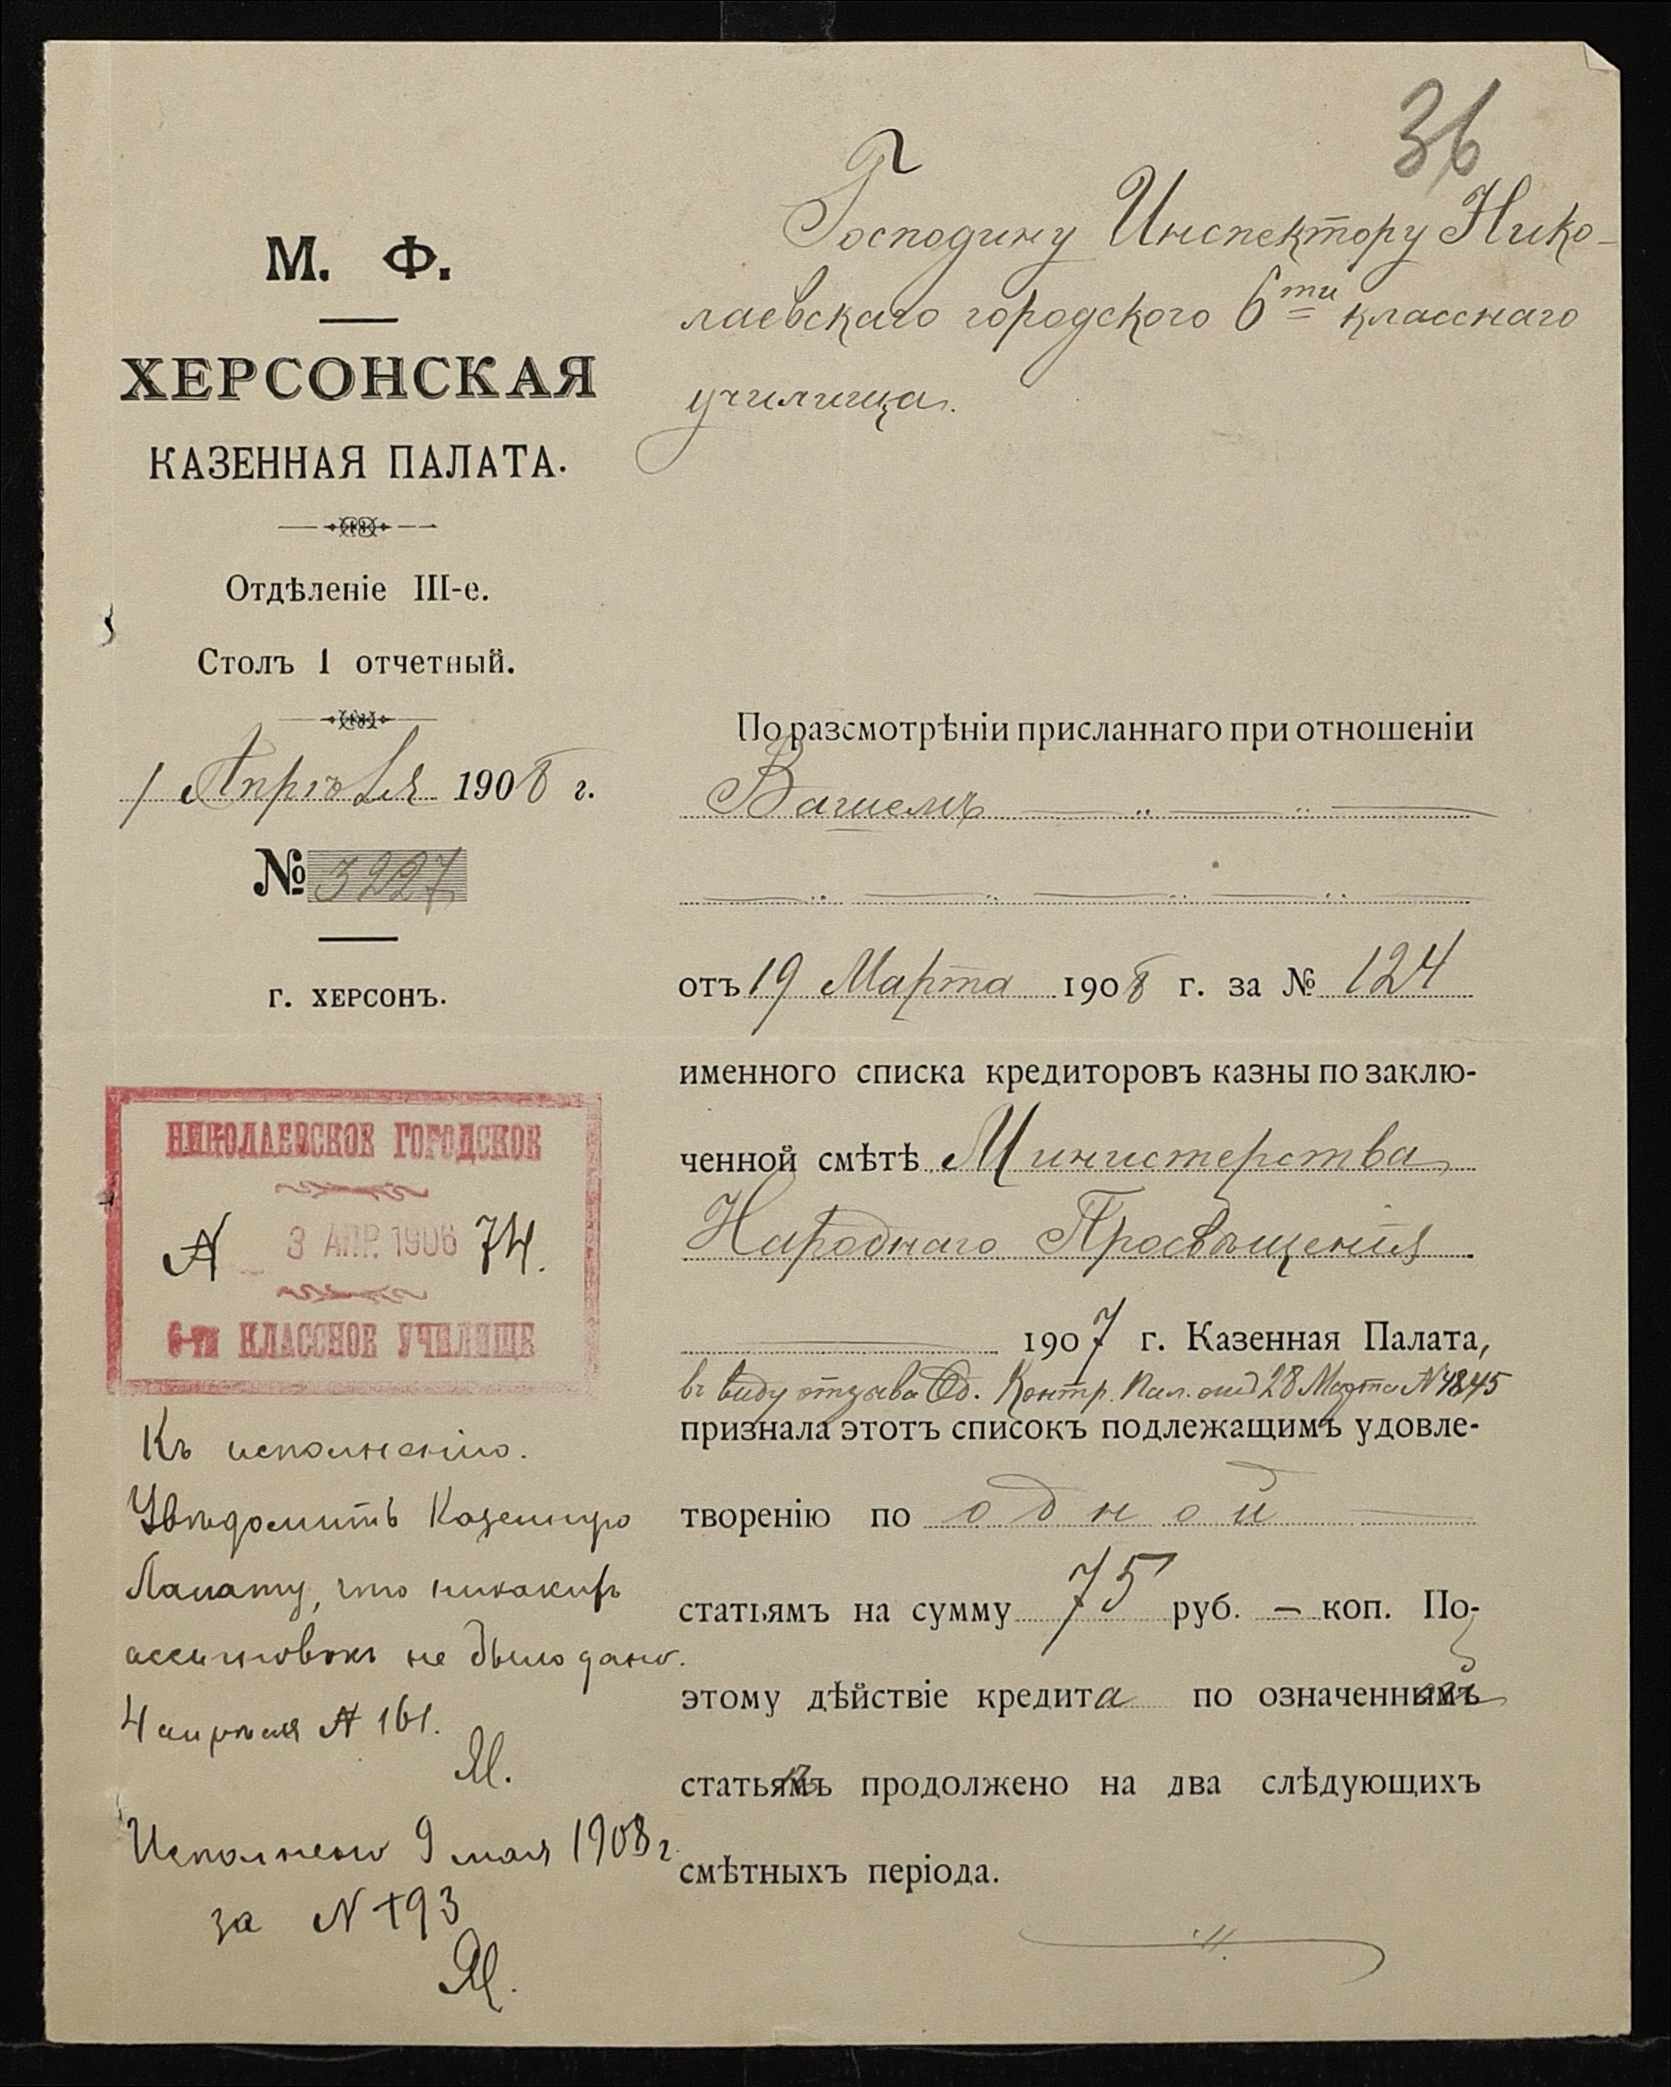 36
М. Ф.
ХЕРСОНСКАЯ
КАЗЕННАЯ ПАЛАТА.
Отдѣленіе III-е.
Столъ 1 отчетный.
1 Апрѣля 1908 г.
№ 3227
г. ХЕРСОНЪ.
НИКОЛАЕВСКОЕ ГОРОДСКОЕ
№ 3 АПР. 1908 74.
6-ти КЛАССНОЕ УЧИЛИЩЕ
Къ исполненію.
Увѣдомить Казенную
Палату, что никакихъ
ассигновокъ не было дано.
4 апрѣля № 161.
Исполнено 9 мая 1908 г.
за № 193
Господину Инспектору Нико-
лаевскаго городского 6ти класснаго
училища.
По разсмотрѣніи присланнаго при отношеніи
Вашемъ
отъ 19 Марта 1908 г. за № 124
именного списка кредиторовъ казны по заклю-
ченной смѣтѣ Министерства
Народнаго Просвѣщенія
1907 г. Казенная Палата,
въ виду отзыва Од. Контр. Пал. отъ 28 Марта № 4845
признала этотъ списокъ подлежащимъ удовле-
творенію по одной
статьямъ на сумму 75 руб. — коп. По-
этому дѣйствіе кредита по означеннымъ
статьямъ продолжено на два слѣдующихъ
смѣтныхъ періода.